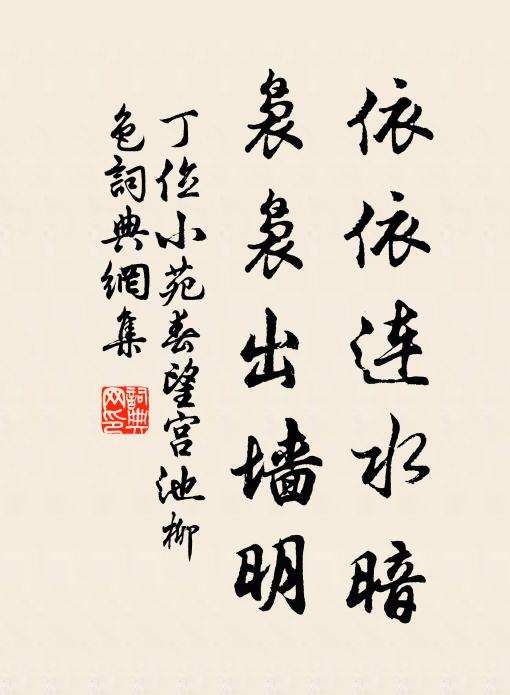 依依连水暗
袅袅出墙明
丁位小苑春望宫池柳
色词典網集
詞典
网印